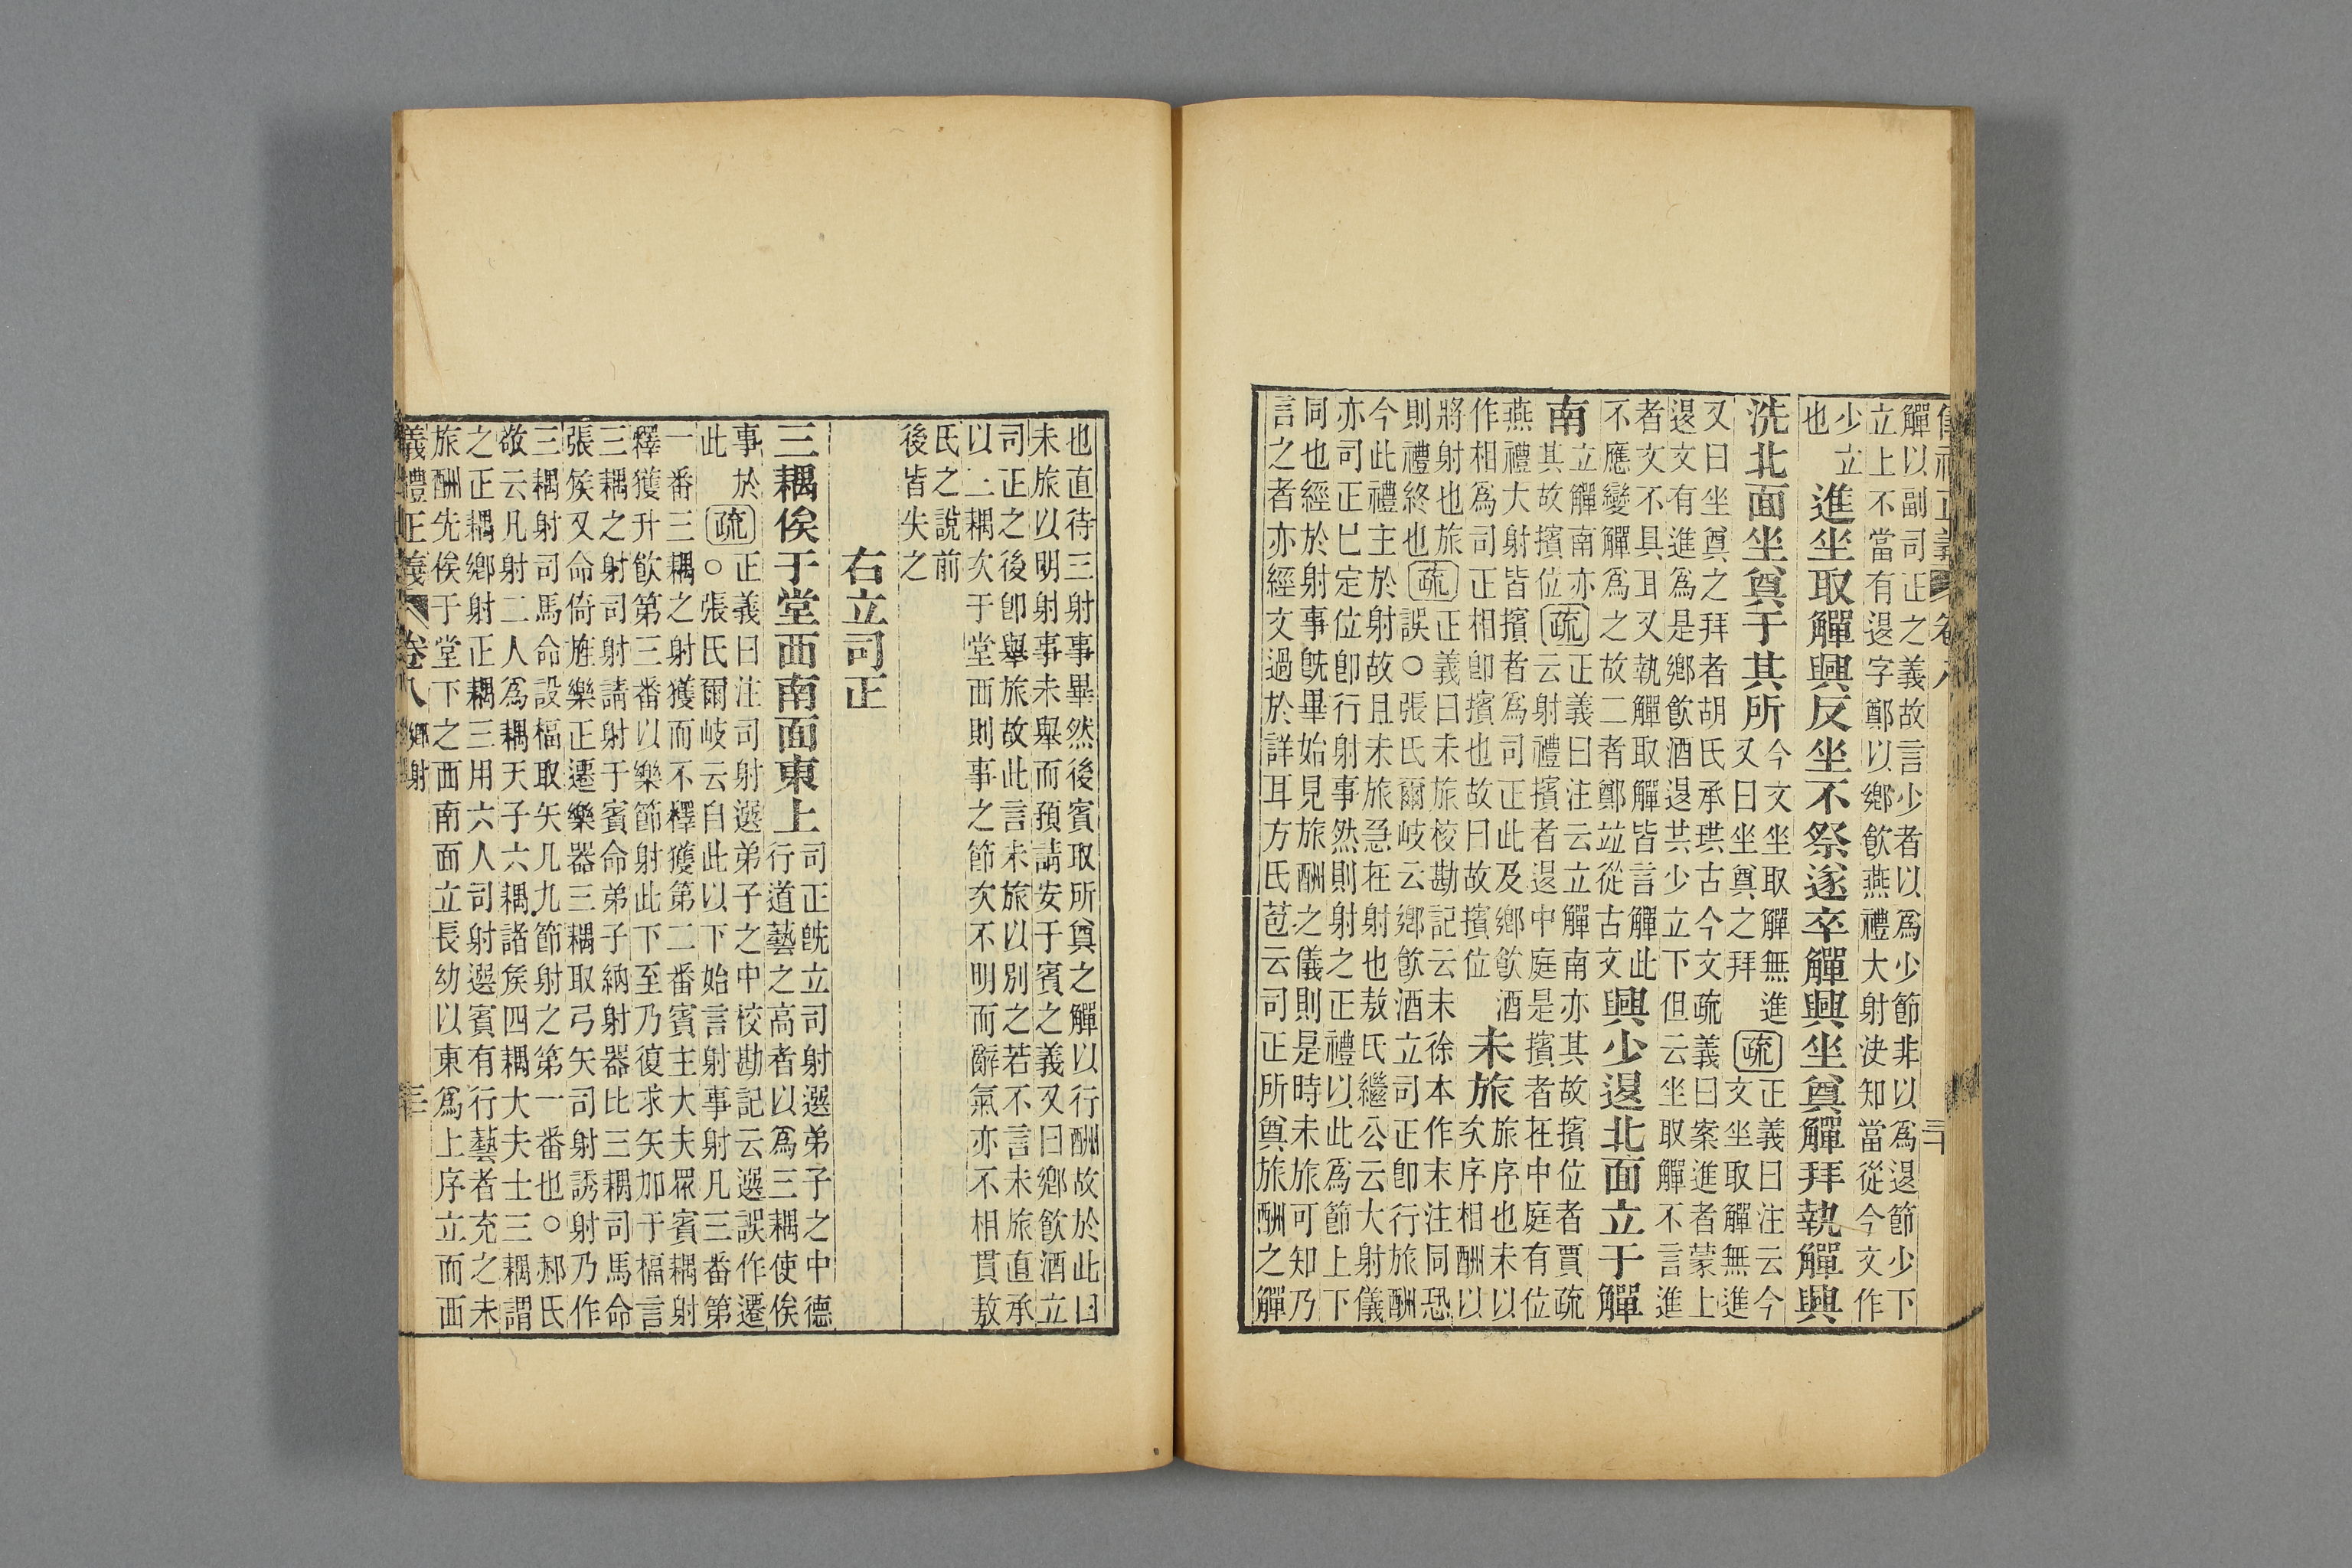 儀禮正義 卷八 三十
觶以副司正之義故言少者以爲少節非以爲退節少下
立上不當有退字鄭以鄉飮燕禮大射決知當從今文作
少立
也 進坐取觶興反坐不祭遂卒觶興坐奠觶拜執觶興
洗北面坐奠于其所
今文坐取觶無進
又曰坐奠之拜
疏
正義曰注云今
文坐取觶無進
又曰坐奠之拜者胡氏承珙古今文疏義曰案進者蒙上
退文有進爲是鄉飮酒退共少立下但云坐取觶不言進
者文不具耳又執觶取觶皆言觶此
不應變觶爲之故二者鄭竝從古文
興少退北面立于觶
南
立觶南亦
其故擯位
疏
正義曰注云立觶南亦其故擯位者賈疏
云射禮擯者退中庭是擯者在中庭有位
燕禮大射皆擯者爲司正此及鄉飮酒
作相爲司正相卽擯也故曰故擯位
未旅
旅序也未以
次序相酬以
將射也旅
則禮終也
疏
正義曰未旅校勘記云未徐本作末注同恐
誤○張氏爾岐云鄉飮酒立司正卽行旅酬
今此禮主於射故且未旅急在射也敖氏繼公云大射儀
亦司正已定位卽行射事然則射之正禮以此爲節上下
同也經於射事旣畢始見旅酬之儀則是時未旅可知乃
言之者亦經文過於詳耳方氏苞云司正所奠旅酬之觶
也直待三射事畢然後賓取所奠之觶以行酬故於此曰
未旅以明射事未舉而預請安于賓之義又曰鄉飮酒立
司正之後卽舉旅故此言未旅以別之若不言未旅直承
以二耦次于堂西則事之節次不明而辭氣亦不相貫敖
氏之說前
後皆失之
右立司正
三耦俟于堂西南面東上
司正旣立司射選弟子之中德
行道藝之高者以爲三耦使俟
事於
此
疏
正義曰注司射選弟子之中校勘記云選誤作遷
○張氏爾岐云自此以下始言射事射凡三番第
一番三耦之射獲而不釋獲第二番賓主大夫眾賓耦射
釋獲升飮第三番以樂節射此下至乃復求矢加于楅言
三耦之射司射請射于賓命弟子納射器比三耦司馬命
張侯又命倚旌樂正遷樂器三耦取弓矢司射誘射乃作
三耦射司馬命設楅取矢凡九節射之第一番也○郝氏
敬云凡射二人爲耦天子六耦諸侯四耦大夫士三耦謂
之正耦鄉射正耦三用六人司射選賓有行藝者充之未
旅酬先俟于堂下之西南面立長幼以東爲上序立而西
義禮正義 卷八 鄉射